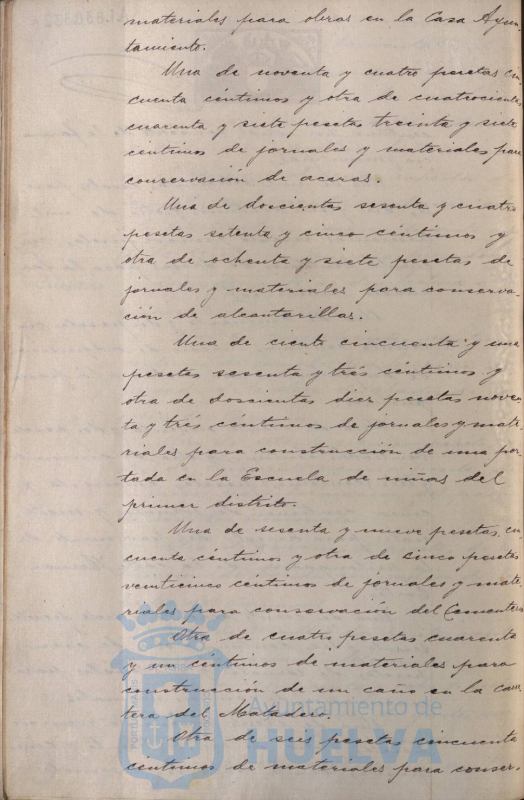 materiales para obras en la Casa Ayun-
tamiento.
Una de noventa y cuatro pesetas cin
cuenta céntimos y otra de cuatrocientas
cuarenta y siete pesetas treinta y siete
céntimos de jornales y materiales para
conservación de aceras.
Una de doscientas sesenta y cuatro
pesetas setenta y cinco céntimos y
otra de ochenta y siete pesetas de
jornales y materiales para conserva-
ción de alcantarillas.
Una de ciento cincuenta y una
pesetas sesenta y trés céntimos y
otra de doscientas diez pesetas noven-
ta y trés céntimos de jornales y mate-
riales para construcción de una por
tada en la Escuela de niñas del
primer distrito.
Una de sesenta y nueve pesetas, cin
cuenta céntimos y otra de cinco pesetas
veinticinco céntimos de jornales y mate-
riales para conservación del Cementerio
Otra de cuatro pesetas cuarenta
y un céntimos de materiales para
construcción de un caño en la carre
tera del Matadero.
Otra de seis pesetas cincuenta
céntimos de materiales para conser-
Ayuntamiento de
HUELVA